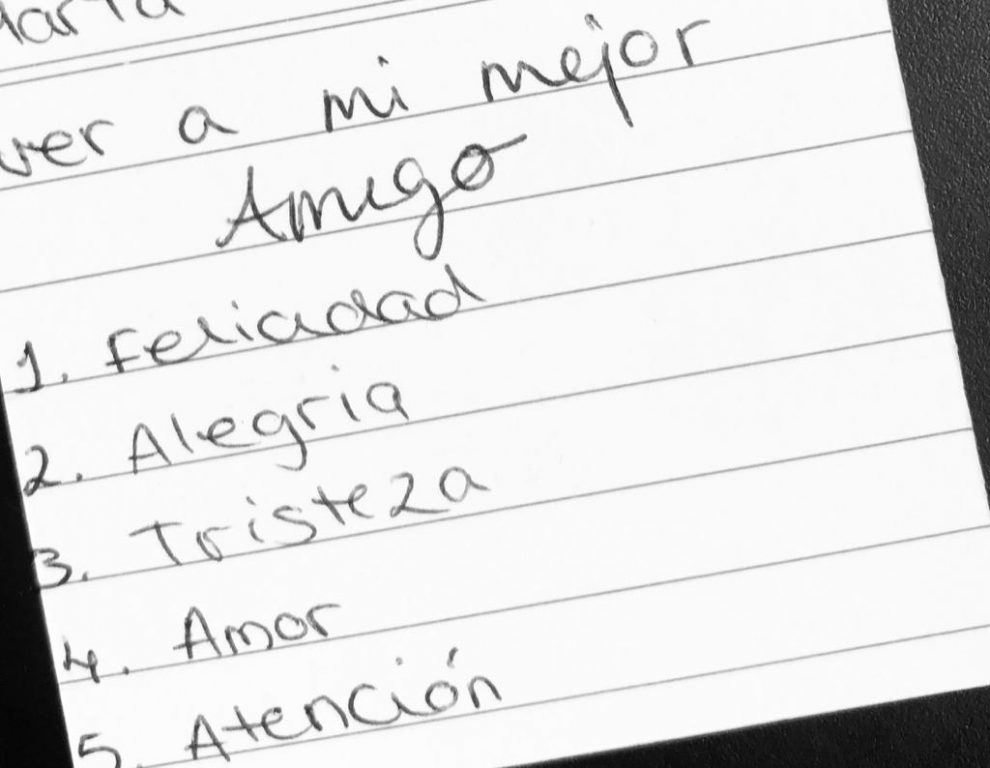 ver a mi mejor
Amigo
1. Feliadad
2. Alegria
3. Tristeza
4. Amor
5. Atención